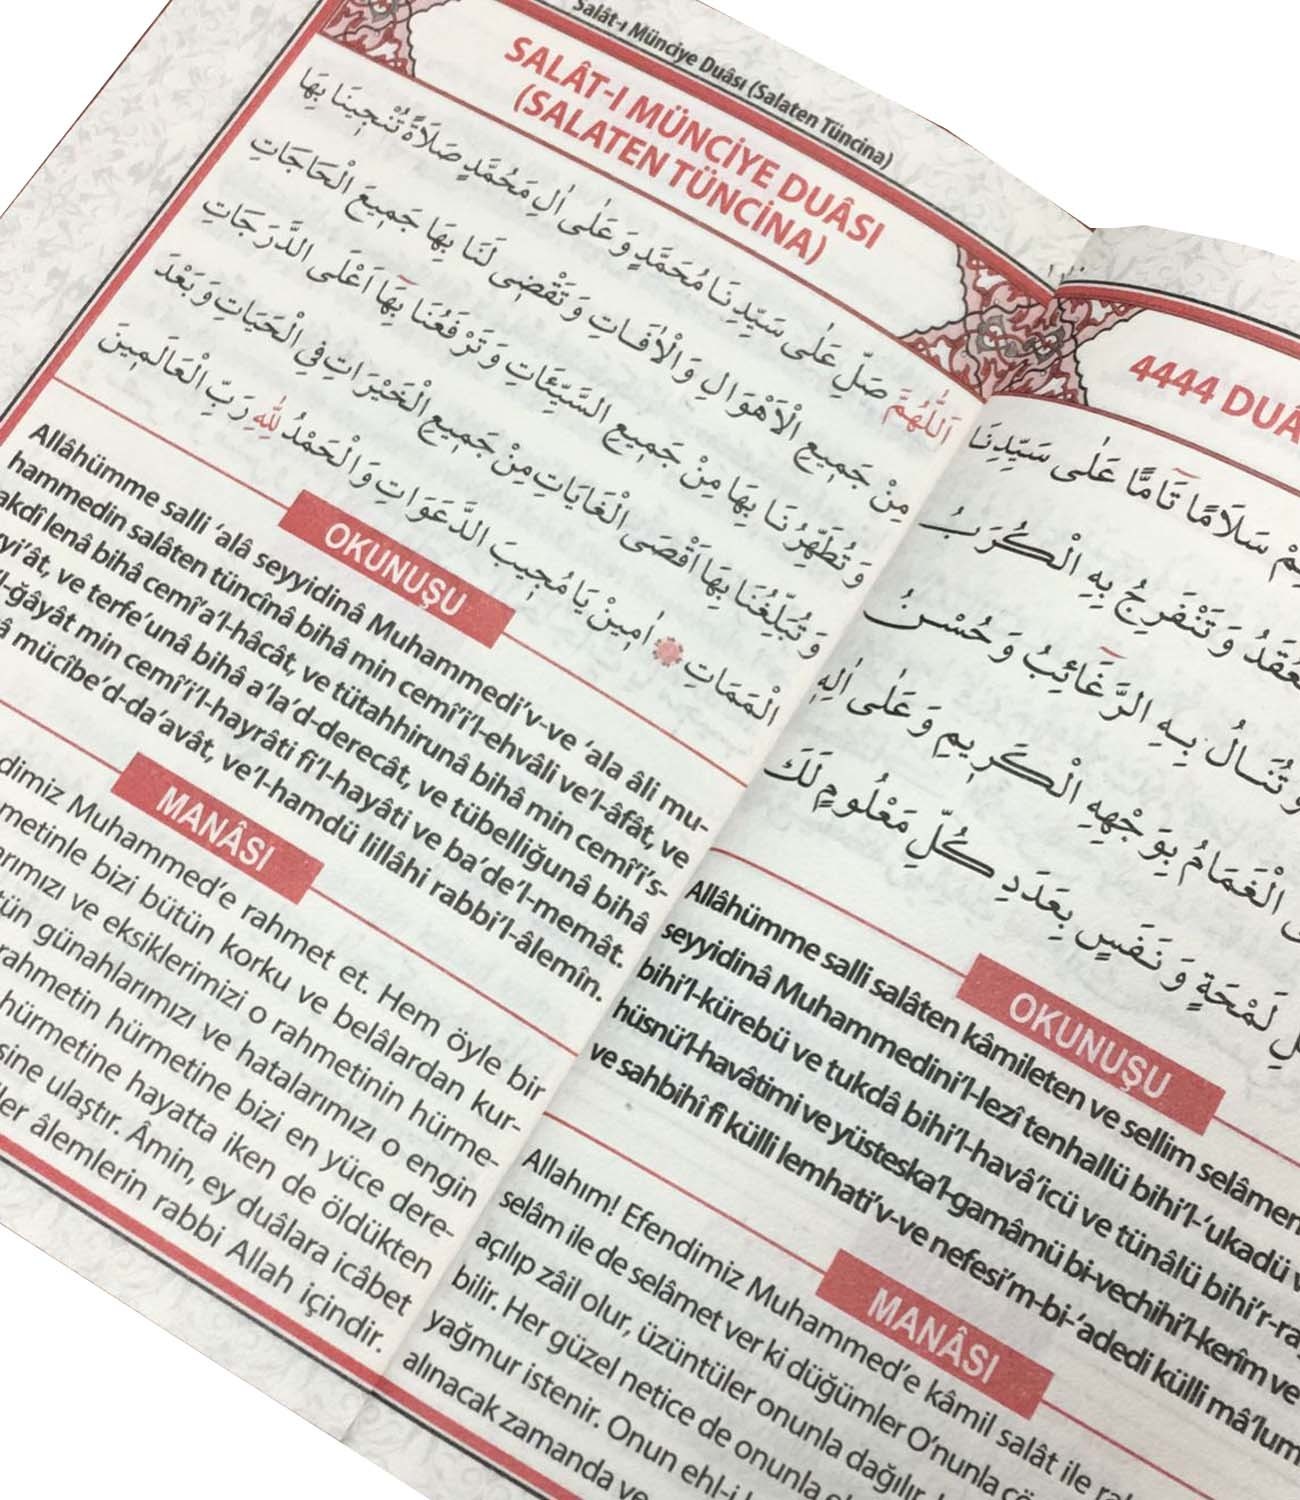 Salât-ı Münciye Duâsı (Salaten Tüncina)
SALÂT-I MÜNCİYE DUÂSI
(SALATEN TÜNCİNA)
اَللّٰهُمَّ صَلِّ عَلٰى سَيِّدِنَا مُحَمَّدٍ وَعَلٰى اٰلِ مُحَمَّدٍ صَلَاةً تُنْجِينَا بِهَا
مِنْ جَمِيعِ الْاَهْوَالِ وَالْاٰفَاتِ وَتَقْضِى لَنَا بِهَا جَمِيعَ الْحَاجَاتِ
وَتُطَهِّرُنَا بِهَا مِنْ جَمِيعِ السَّيِّئَاتِ وَتَرْفَعُنَا بِهَا اَعْلَى الدَّرَجَاتِ
وَتُبَلِّغُنَا بِهَا اَقْصَى الْغَايَاتِ مِنْ جَمِيعِ الْخَيْرَاتِ فِى الْحَيَاتِ وَبَعْدَ
الْمَمَاتِ اٰمِينْ يَا مُجِيبَ الدَّعَوَاتِ وَالْحَمْدُ لِلّٰهِ رَبِّ الْعَالَمِينَ
OKUNUŞU
Allâhümme salli ‘alâ seyyidinâ Muhammedi’v-ve ‘ala âli mu-
hammedin salâten tüncînâ bihâ min cemî’i’l-ehvâli ve’l-âfât, ve
akdî lenâ bihâ cemî’a’l-hâcât, ve tütahhirunâ bihâ min cemî’i’s-
yyi’ât, ve terfe’unâ bihâ a’la’d-derecât, ve tübelliğunâ bihâ
l-ğâyât min cemî’i’l-hayrâti fi’l-hayâti ve ba’de’l-memât.
â mücîbe’d-da’avât, ve’l-hamdü lillâhi rabbi’l-âlemîn.
MANÂSI
dimiz Muhammed’e rahmet et. Hem öyle bir
metinle bizi bütün korku ve belâlardan kur-
arımızı ve eksiklerimizi o rahmetinin hürme-
tün günahlarımızı ve hatalarımızı o engin
rahmetin hürmetine bizi en yüce dere-
hürmetine hayatta iken de öldükten
sine ulaştır. Âmin, ey duâlara icâbet
ler âlemlerin rabbi Allah içindir.
4444 DUÂ
سَلَامًا تَآمًّا عَلٰى سَيِّدِنَا
وَتَنْفَرِجُ بِهِ الْكُرَبُ
وَتُنَالُ بِهِ الرَّغَآئِبُ وَحُسْنُ
الْغَمَامُ بِوَجْهِهِ الْكَرِيمِ وَعَلٰى اٰلِهِ
لَمْحَةٍ وَنَفَسٍ بِعَدَدِ كُلِّ مَعْلُومٍ لَكَ
OKUNUŞU
Allâhümme salli salâten kâmileten ve sellim selâmen
seyyidinâ Muhammedini’l-lezî tenhallü bihi’l-‘ukadü v
bihi’l-kürebü ve tukdâ bihi’l-havâ’icü ve tünâlü bihi’r-rağ
hüsnü’l-havâtimi ve yüsteska’l-gamâmü bi-vechihi’l-kerîm ve
ve sahbihî fî külli lemhati’v-ve nefesi’m-bi-‘adedi külli mâ’lum
MANÂSI
Allahım! Efendimiz Muhammed’e kâmil salât ile
selâm ile de selâmet ver ki düğümler O’nunla
açılıp zâil olur, üzüntüler onunla dağılır,
bilir. Her güzel netice de onunla
yağmur istenir. Onun ehl-i
alınacak zamanda ve